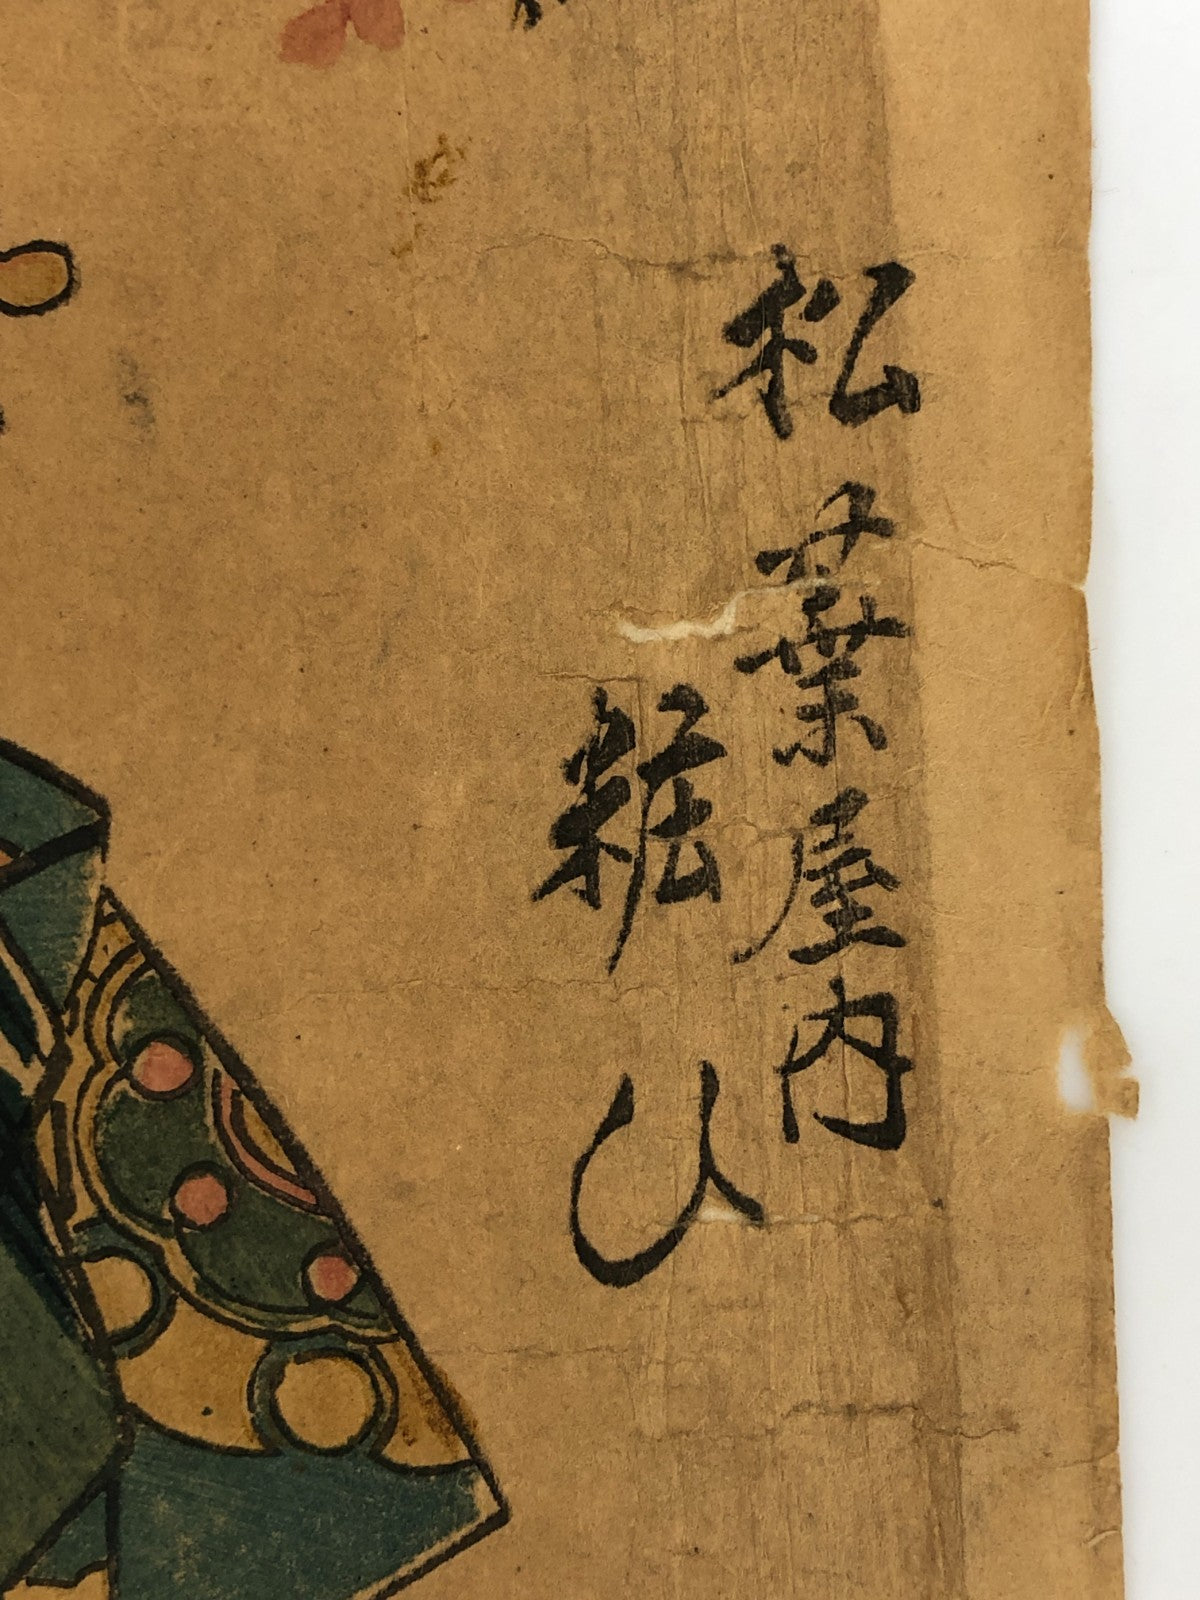 松葉屋内
粧ひ